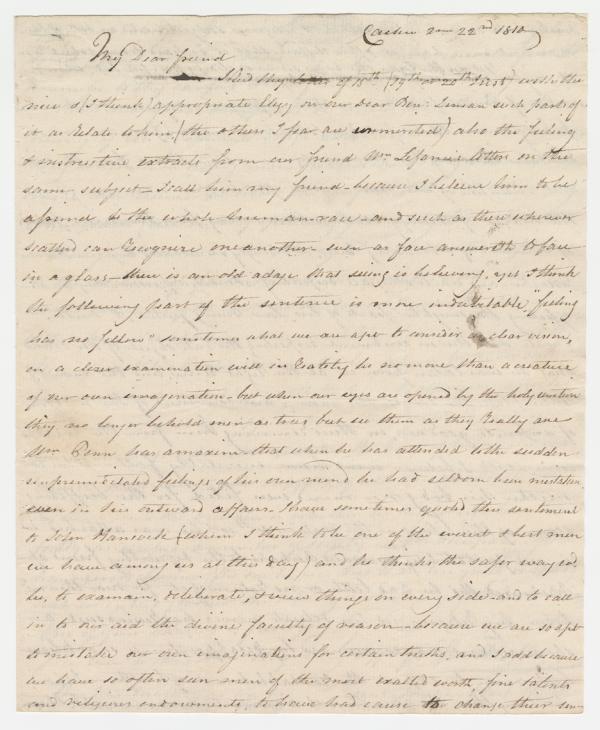 2mo 22nd 1810
My Dear friend
I recd thy letter of 15th (19th or 20th Inst) with the
nice & (I think) appropriate Elegy on our Dear Ben: such parts of
it as relate to him (the others I fear are unmerited) also the feeling
& instructive extracts from our friend Wm letters on the
same subject – I call him my friend – because I believe him to be
a friend to the whole human race – and such as these wherever
scatterd can recognize one another – even as face answereth to face
in a glass – there is an old adage that seeing is believing, yet I think
the following part of the sentence is more indubitable, "feeling
has no fellow" sometimes what we are apt to consider as clear vision,
on a closer examination will in reality be no more than a creature
of our own imagination – but when our eyes are opened by the holy unction
they no longer behold men as trees but see them as they really are
Wm Penn has a maxim – that when he has attended to the sudden
unpremeditated feelings of his own mind he had seldom been mistaken
even in his outward affairs – I have sometimes quoted this sentiment
to John Hancock (whom I think to be one of the wisest & best men
we have among us at this day) and he thinks the safer way is to
be, to examain, deliberate, & view things on every side – and to call
in to our aid the divine faculty of reason – because we are so apt
to mistake our own imaginations for certain truths, and I add because
we have so often seen men of the most exalted worth, fine talents
and religious endowments, to have had cause to change their sen-